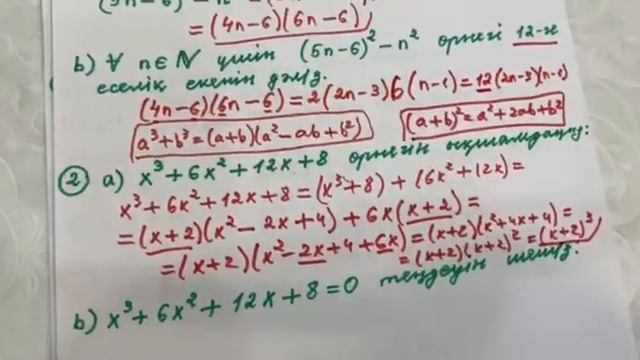 = (4n-6)(6n-6)
b) ∀ n∈N үшін (5n-6)² - n² өрнегі 12-ге
еселік екенін дәлелд.
(4n-6)(6n-6) = 2(2n-3)6(n-1) = 12(2n-3)(n-1)
a³+b³=(a+b)(a²-ab+b²) (a+b)²=a²+2ab+b²
2 a) x³+6x²+12x+8 өрнегін ықшамдаңыз:
x³+6x²+12x+8 = (x³+8) + (6x²+12x) =
= (x+2)(x²-2x+4) + 6x(x+2) =
= (x+2)(x²-2x+4+6x) = (x+2)(x²+4x+4) =
= (x+2)(x+2)² = (x+2)³
b) x³+6x²+12x+8=0 теңдеуін шешіз.